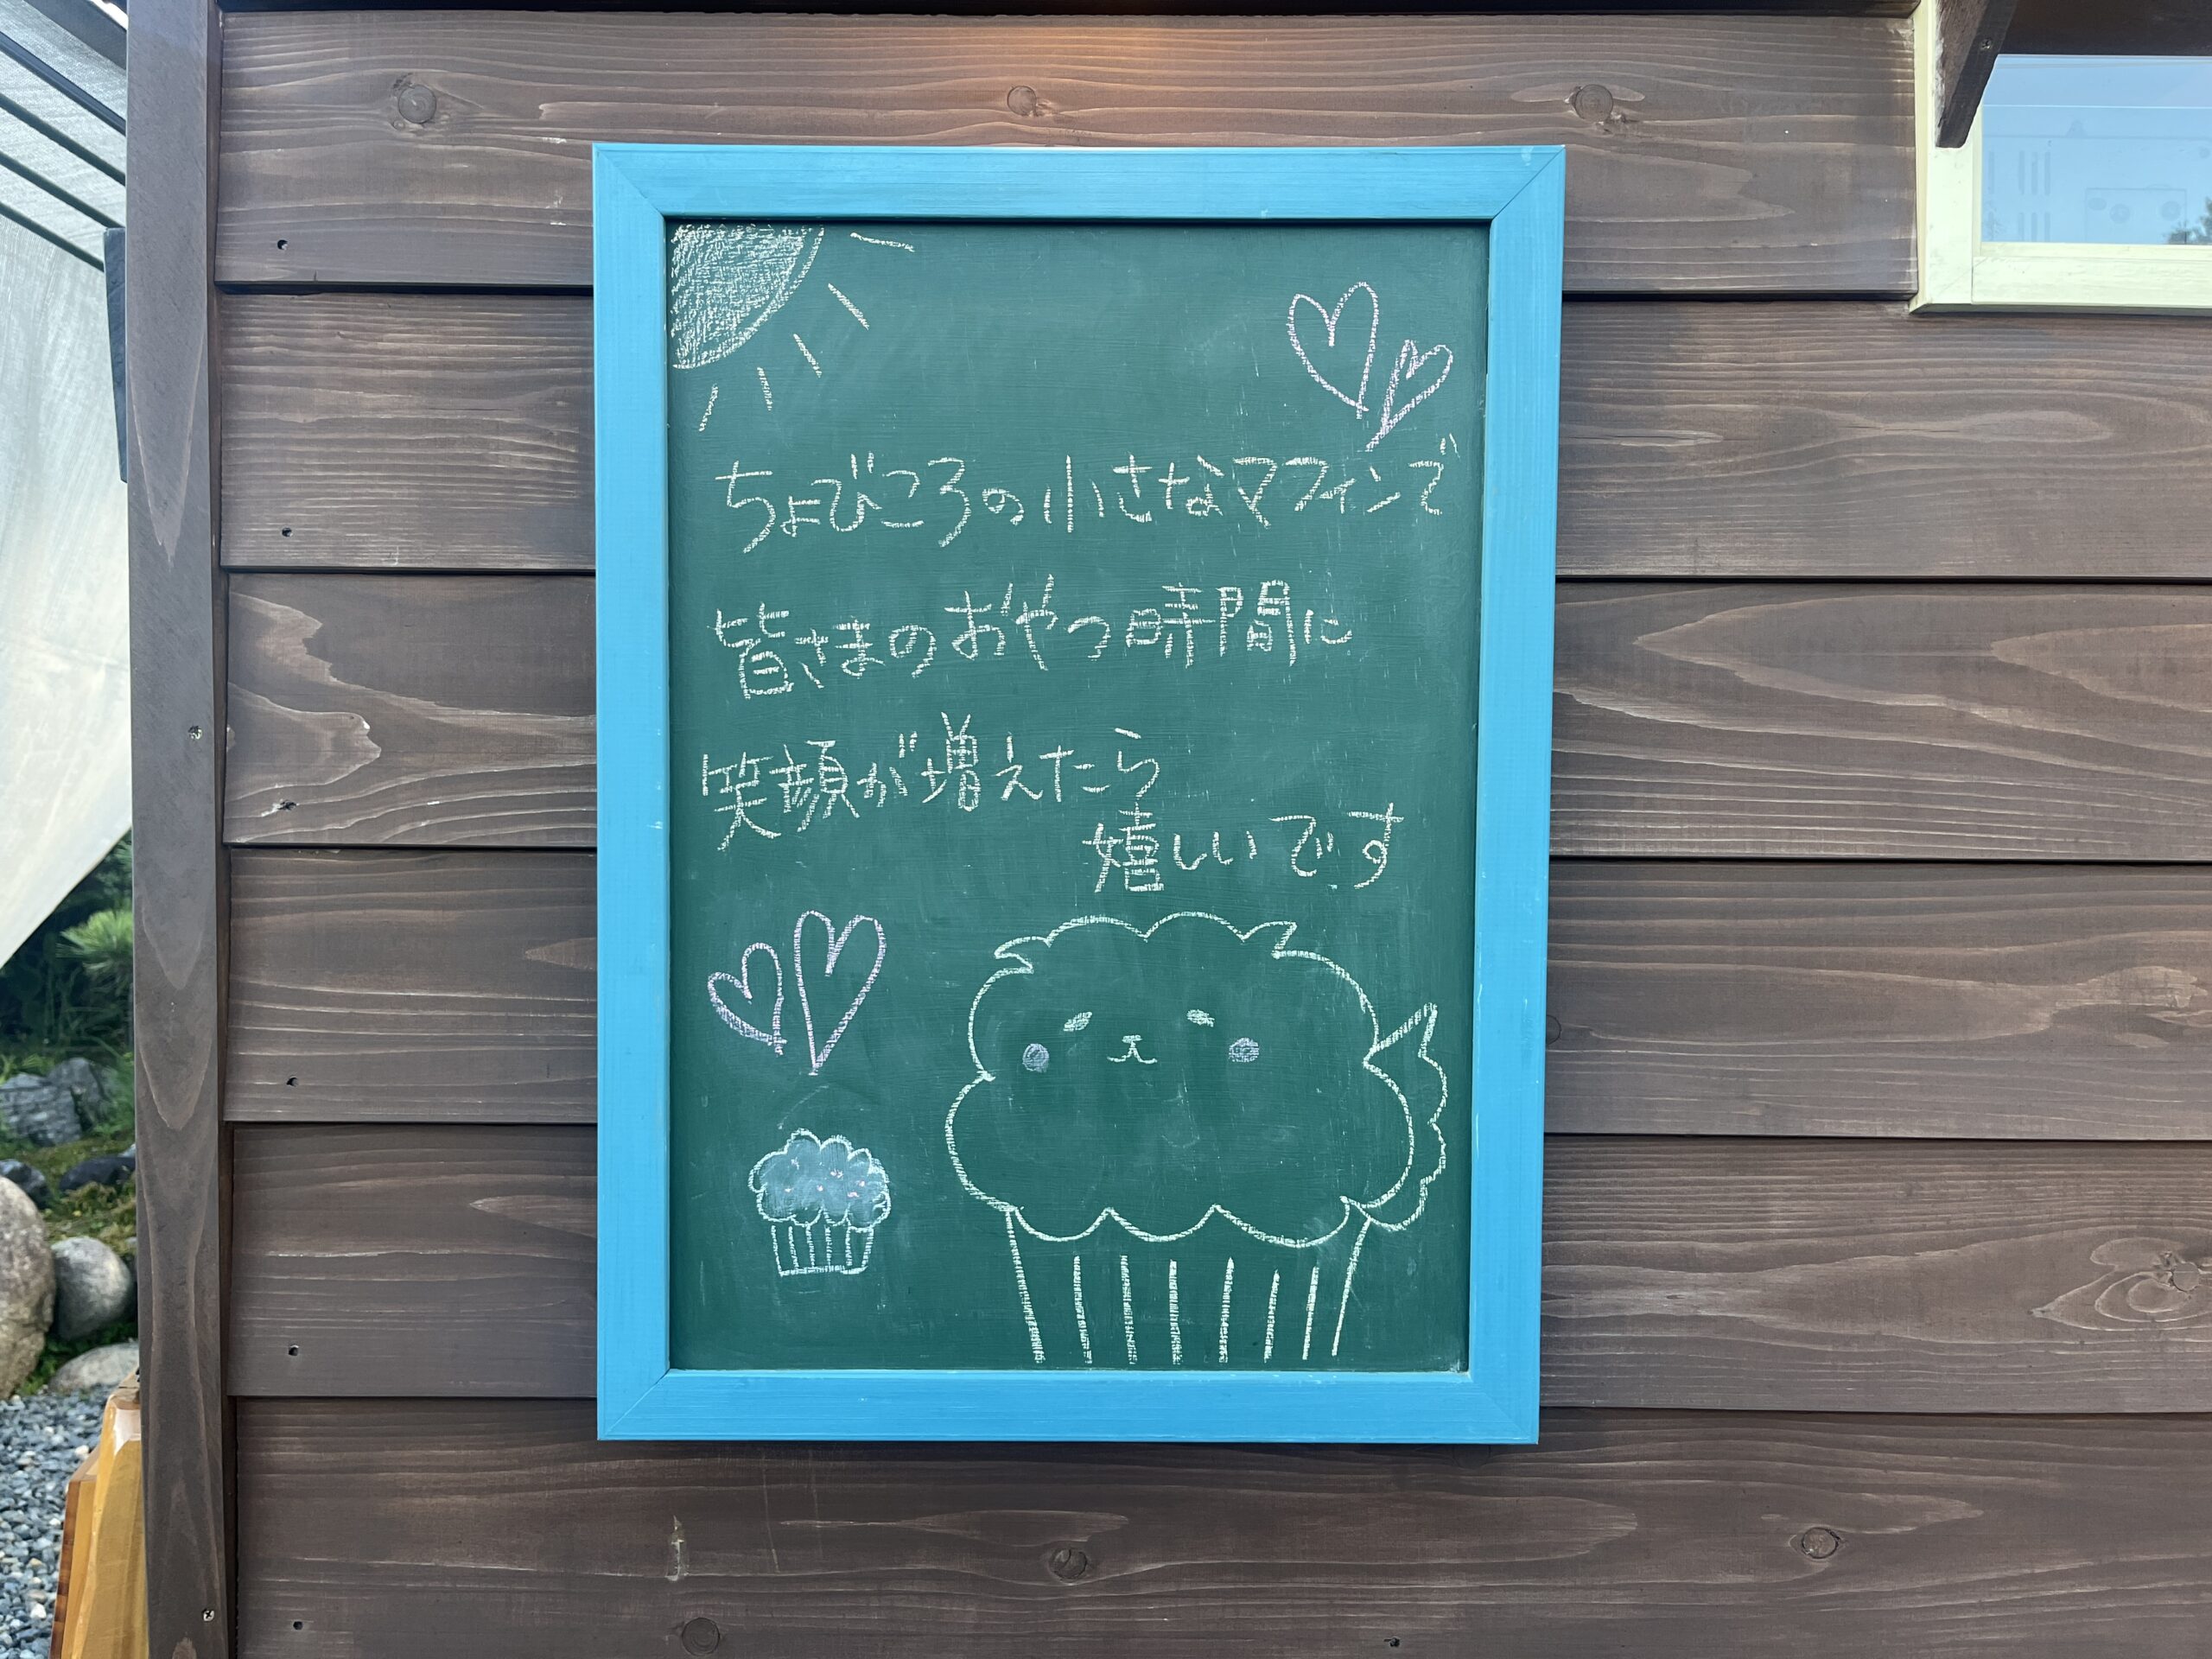 ちょびころの小さなマフィンで
皆さまのおやつ時間に
笑顔が増えたら
嬉しいです